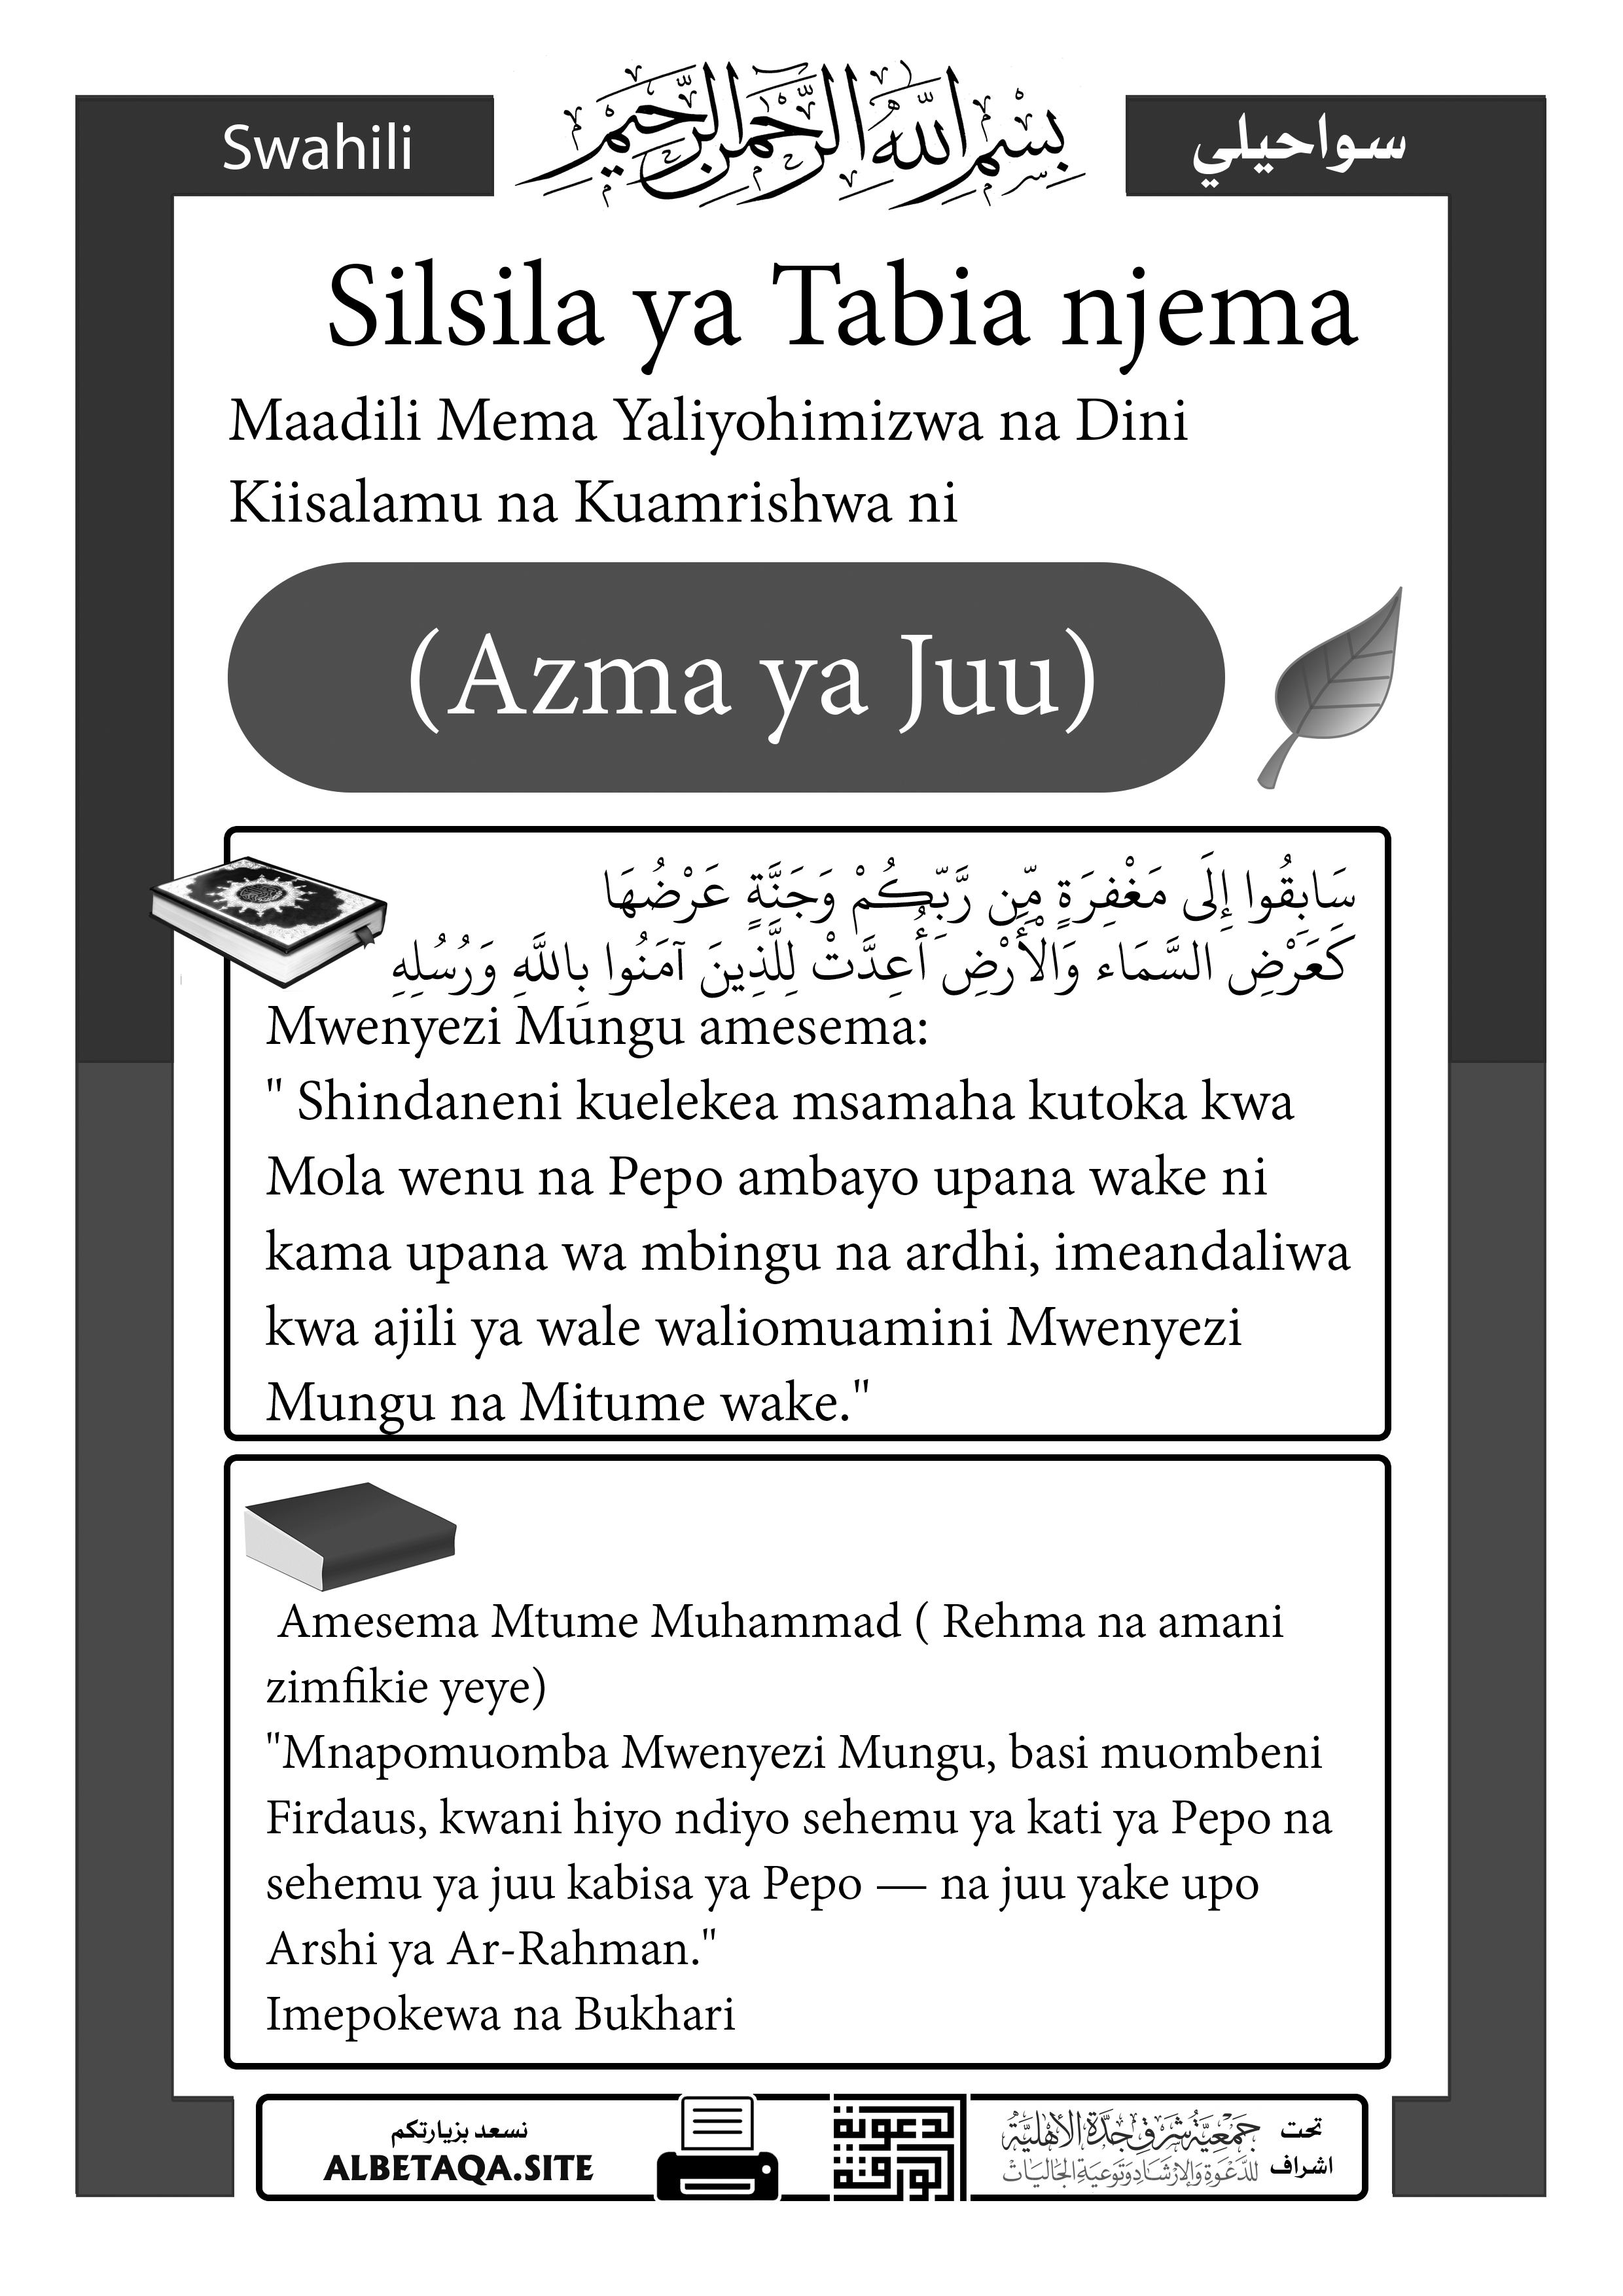 Swahili
بسم الله الرحمن الرحيم
سواحيلي
Silsila ya Tabia njema
Maadili Mema Yaliyohimizwa na Dini
Kiisalamu na Kuamrishwa ni
(Azma ya Juu)
سَابِقُوا إِلَى مَغْفِرَةٍ مِّن رَّبِّكُمْ وَجَنَّةٍ عَرْضُهَا
كَعَرْضِ السَّمَاء وَالْأَرْضِ أُعِدَّتْ لِلَّذِينَ آمَنُوا بِاللَّهِ وَرُسُلِهِ
Mwenyezi Mungu amesema:
" Shindaneni kuelekea msamaha kutoka kwa
Mola wenu na Pepo ambayo upana wake ni
kama upana wa mbingu na ardhi, imeandaliwa
kwa ajili ya wale waliomuamini Mwenyezi
Mungu na Mitume wake."
Amesema Mtume Muhammad ( Rehma na amani
zimfikie yeye)
"Mnapomuomba Mwenyezi Mungu, basi muombeni
Firdaus, kwani hiyo ndiyo sehemu ya kati ya Pepo na
sehemu ya juu kabisa ya Pepo — na juu yake upo
Arshi ya Ar-Rahman."
Imepokewa na Bukhari
نسعد بزيارتكم
ALBETAQA.SITE
الدعوية
الورقية
تحت
اشراف
جمعية شرق جدة الأهلية
للدعوة والإرشاد وتوعية الجاليات